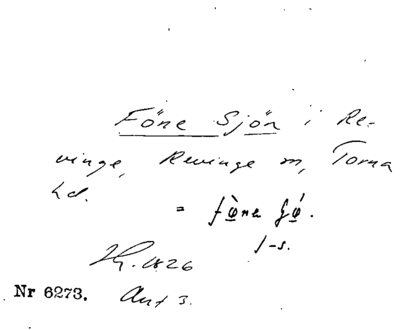 Föne Sjön i Re-
vinge, Revinge m, Torna
hd.
= fø̀na
1-s.
1826
Nr 6273. Ant 3.